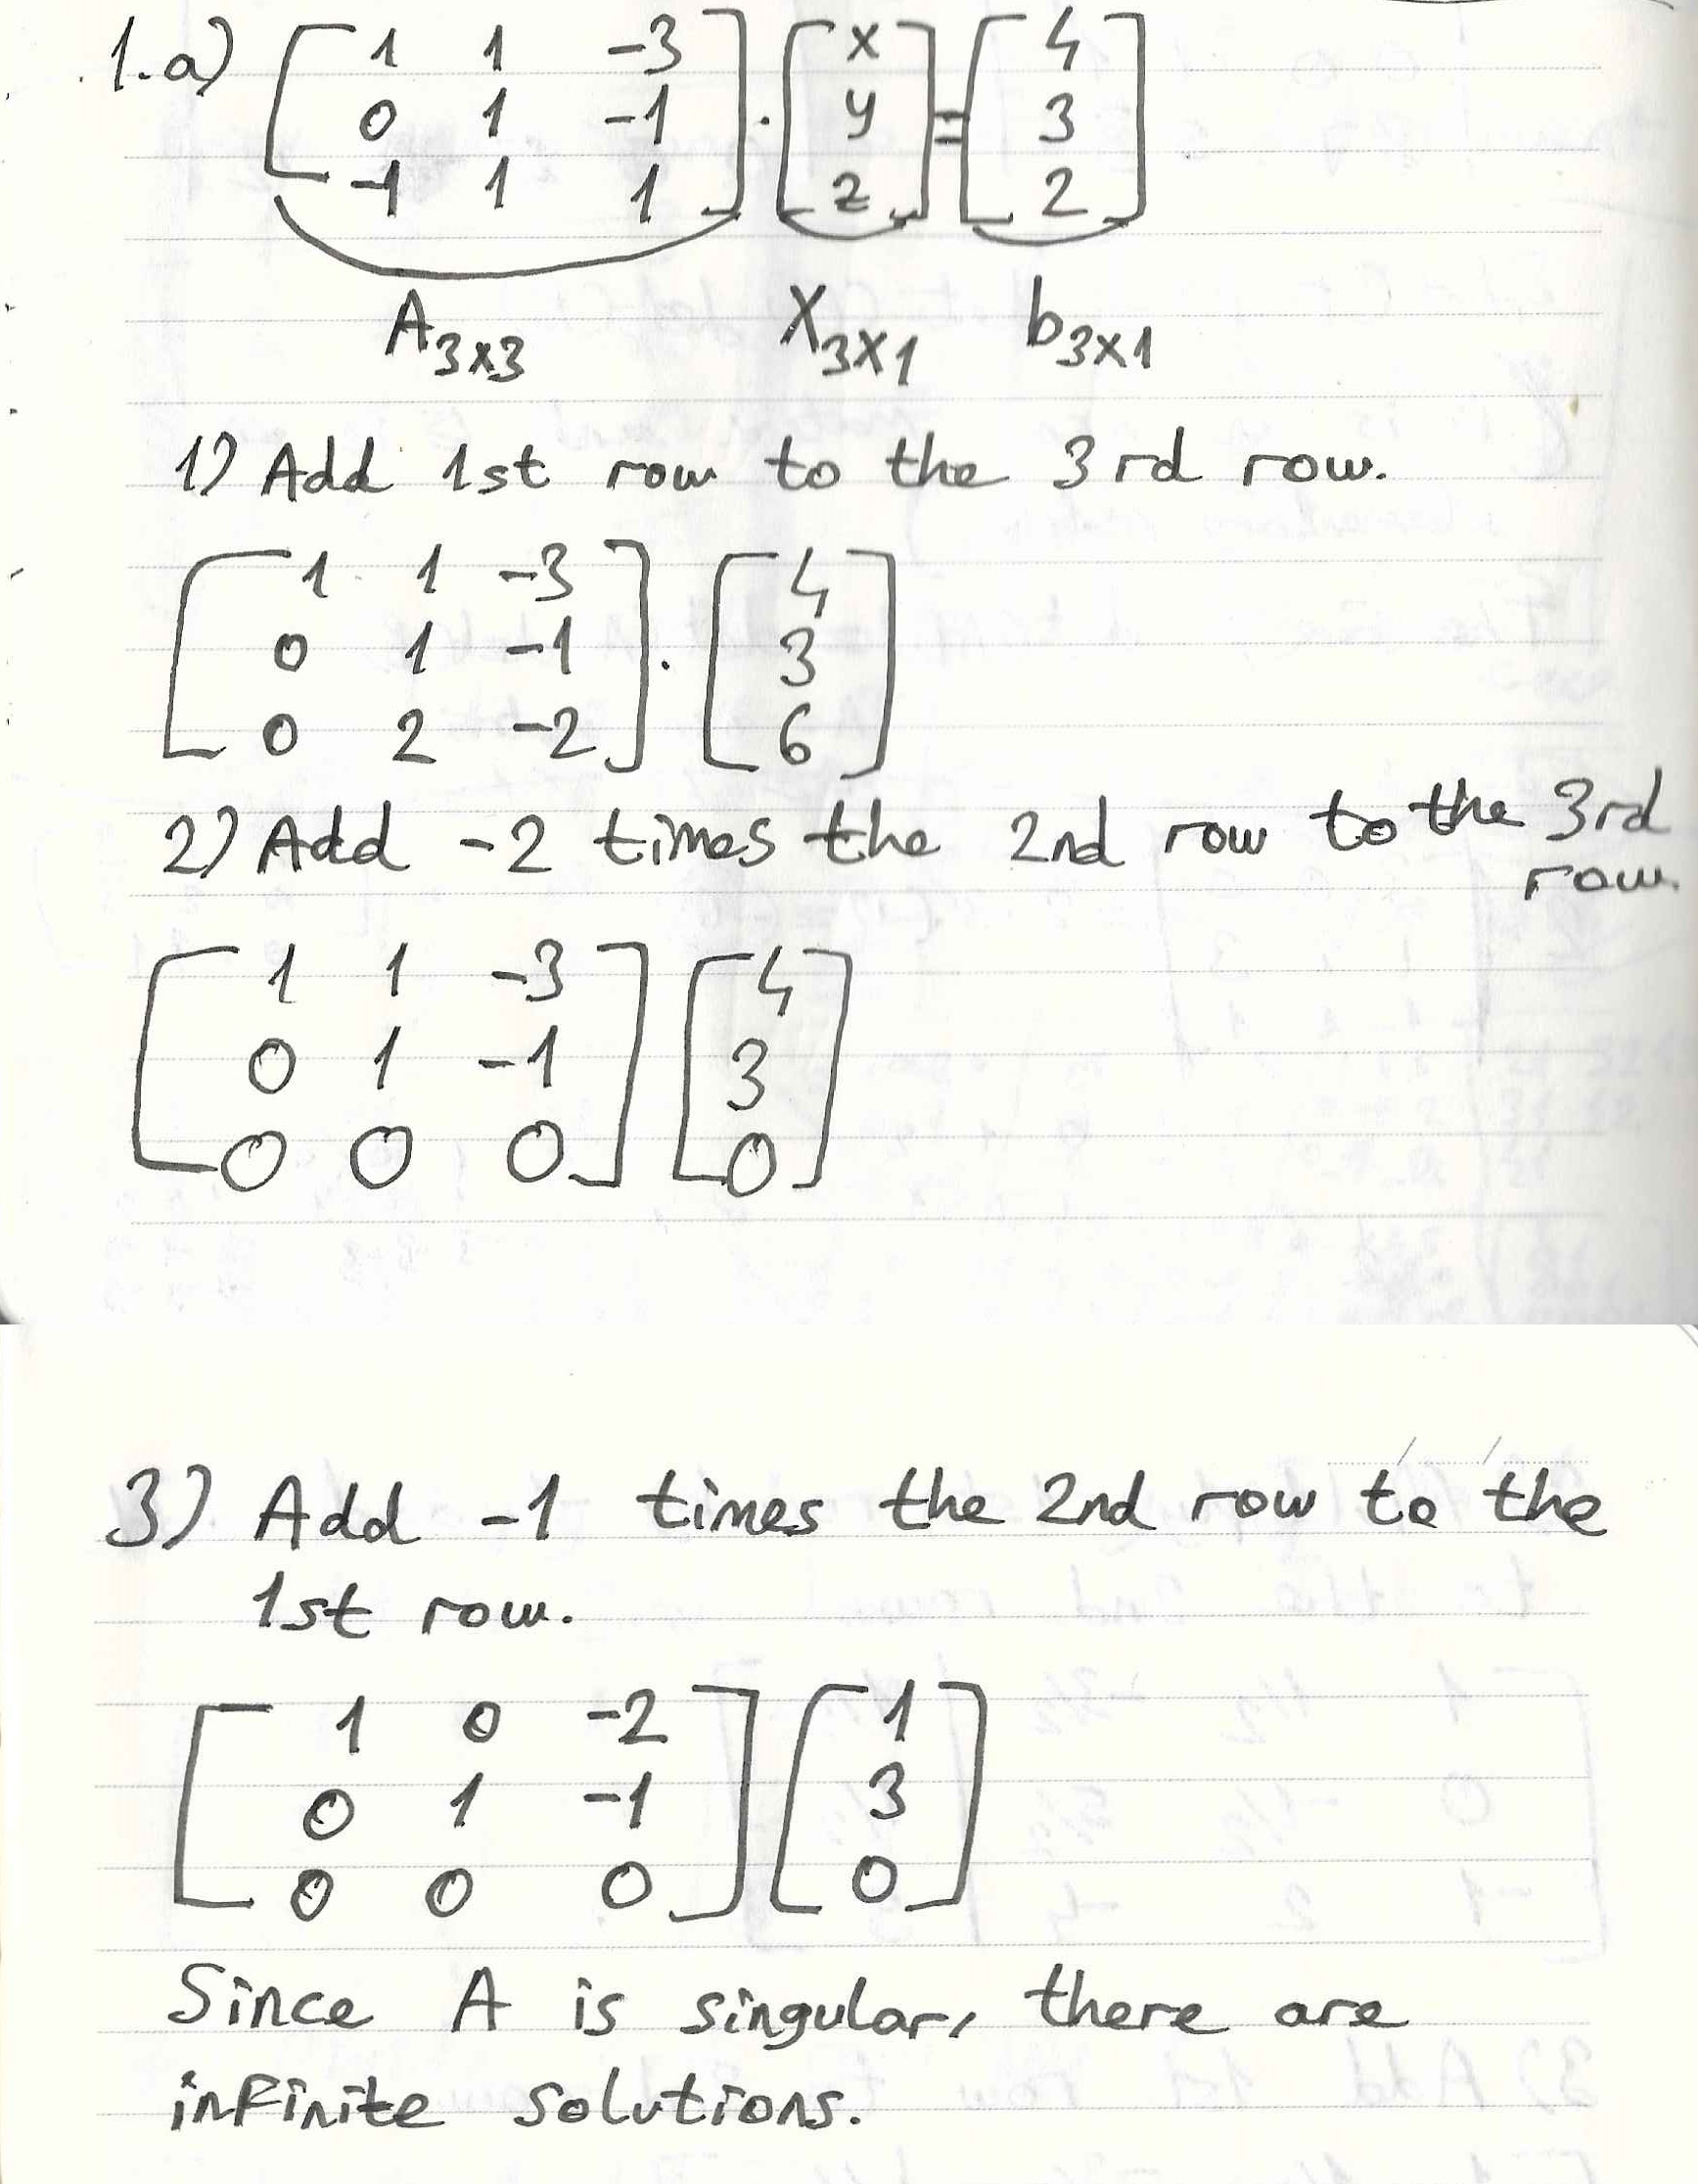 1.a) [ 1 1 -3 ] . [ x ] = [ 4 ]
[ 0 1 -1 ] [ y ] [ 3 ]
[ -1 1 1 ] [ z ] [ 2 ]
A3x3 X3x1 b3x1
1) Add 1st row to the 3rd row.
[ 1 1 -3 ] . [ 4 ]
[ 0 1 -1 ] [ 3 ]
[ 0 2 -2 ] [ 6 ]
2) Add -2 times the 2nd row to the 3rd
row.
[ 1 1 -3 ] [ 4 ]
[ 0 1 -1 ] [ 3 ]
[ 0 0 0 ] [ 0 ]
3) Add -1 times the 2nd row to the
1st row.
[ 1 0 -2 ] [ 1 ]
[ 0 1 -1 ] [ 3 ]
[ 0 0 0 ] [ 0 ]
Since A is singular, there are
infinite solutions.